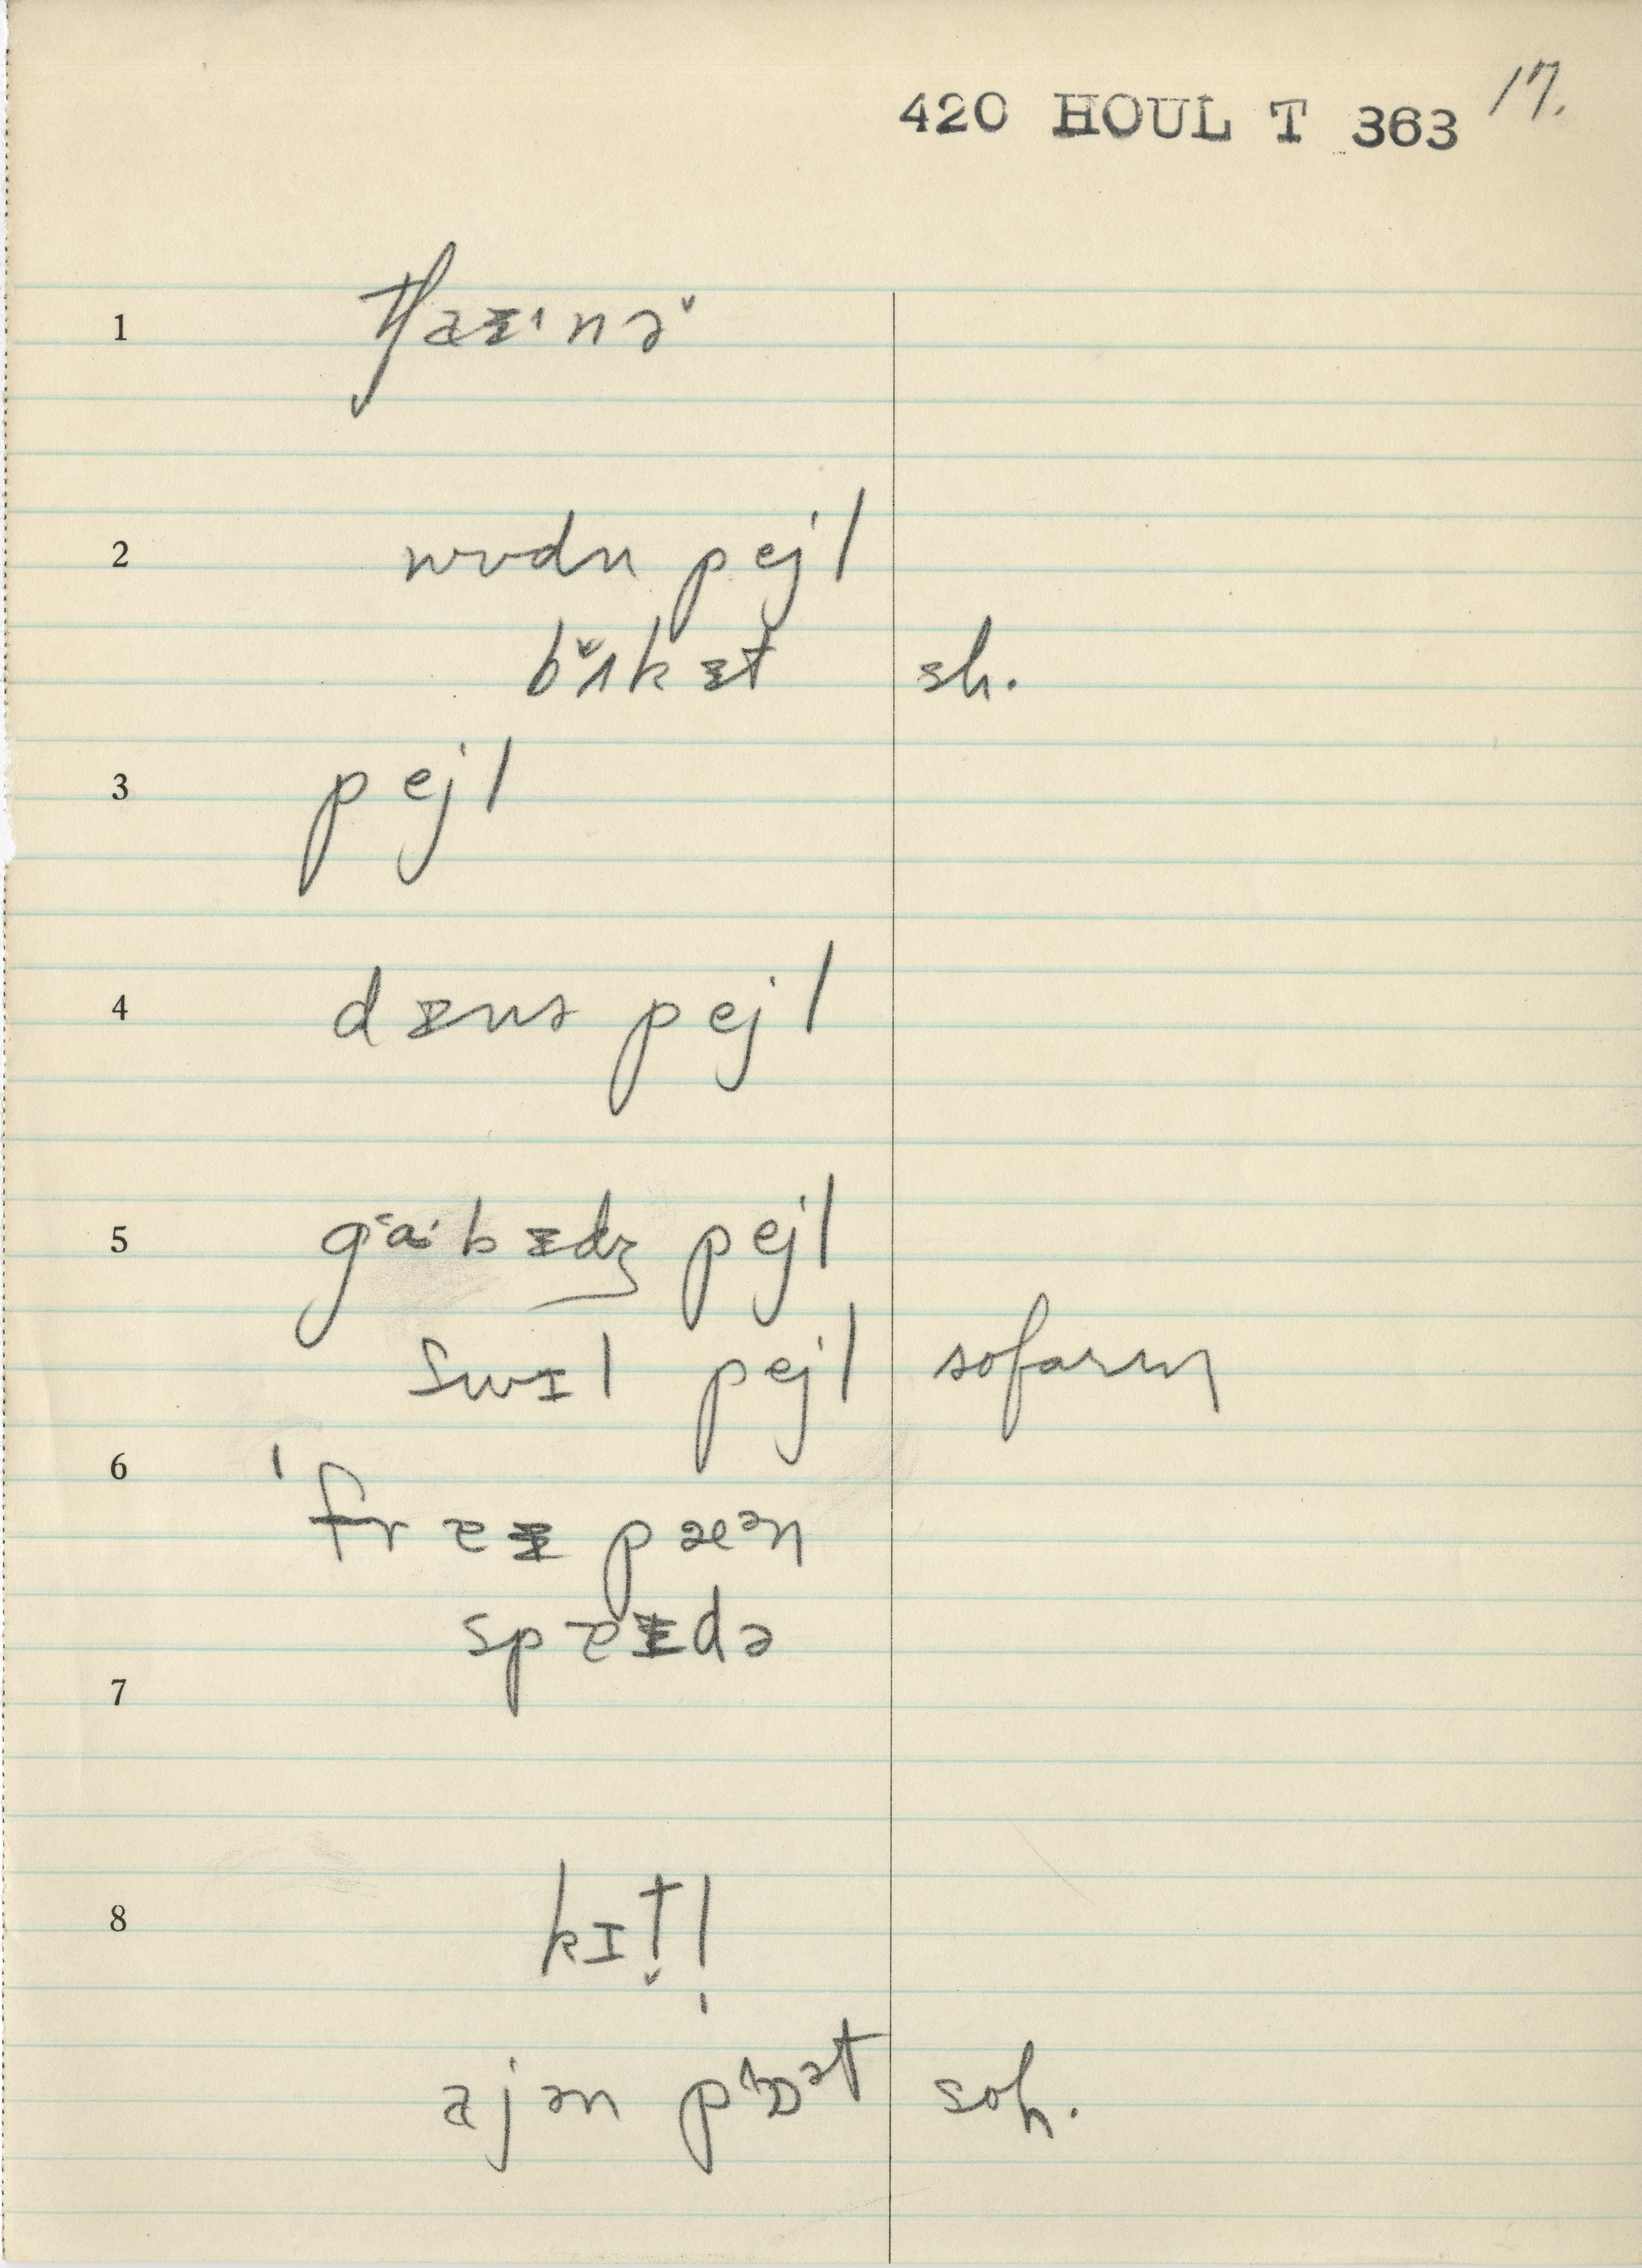 420 HOUL T 363 17.
1
2 wʊdn pejl
bʌ̆kɪ̵t sh.
3 pejl
4 dɪ̵nɚ pejl
5 gabɪ̵dʒ pejl
swɪl pejl so far m
6 ˈfraɪ̵ pæᵊn
spaɪ̵də
7
8 kɪt̬l̩
ajən pʰɒᵊt soh.